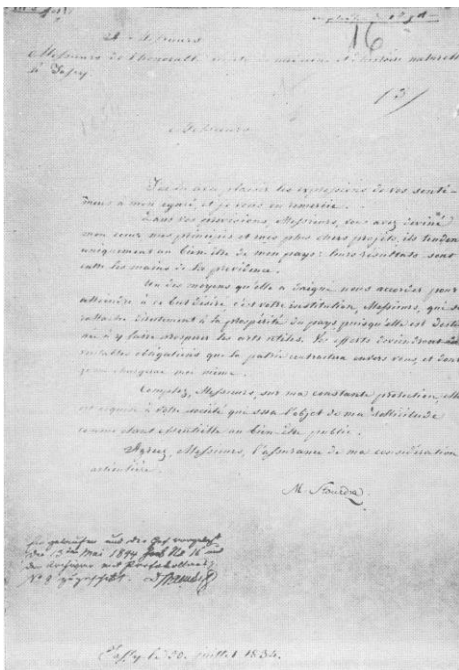 16
A Messieurs
Messieurs de l'honorable société de médecine et d'histoire naturelle
à Jassy
Messieurs
J'ai lu avec plaisir les expressions de vos senti-
mens à mon égard, et je vous en remercie.
Dans vos prévisions, Messieurs, vous avez deviné
mon cœur mes principes et mes plus chers projets, ils tendent
uniquement au bien-être de mon pays: leurs résultats sont
entre les mains de la providence.
Un des moyens qu'elle a daigné nous accorder pour
atteindre à ce but désiré c'est votre institution, Messieurs, qui se
rattache directement à la prospérité du pays puisqu'elle est desti-
née à y faire prospérer les arts utiles. Vos efforts deviendront de
véritables obligations que la patrie contractera envers vous, et dont
je me chargerai moi même.
Comptez, Messieurs, sur ma constante protection, elle
est acquise à votre société qui sera l'objet de ma sollicitude
comme étant essentielle au bien-être public.
Agréez, Messieurs, l'assurance de ma considération
particulière.
M. Stourdza
die 13 Mai 1844 No 16 aus
mit Protokoll
No 9
Jassy le 20. juillet 1834.